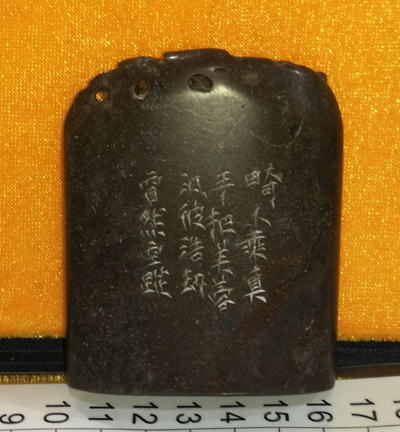 畸人乘真
手把芙蓉
汎彼浩劫
窅然空蹤
9 10 11 12 13 14 15 16 17